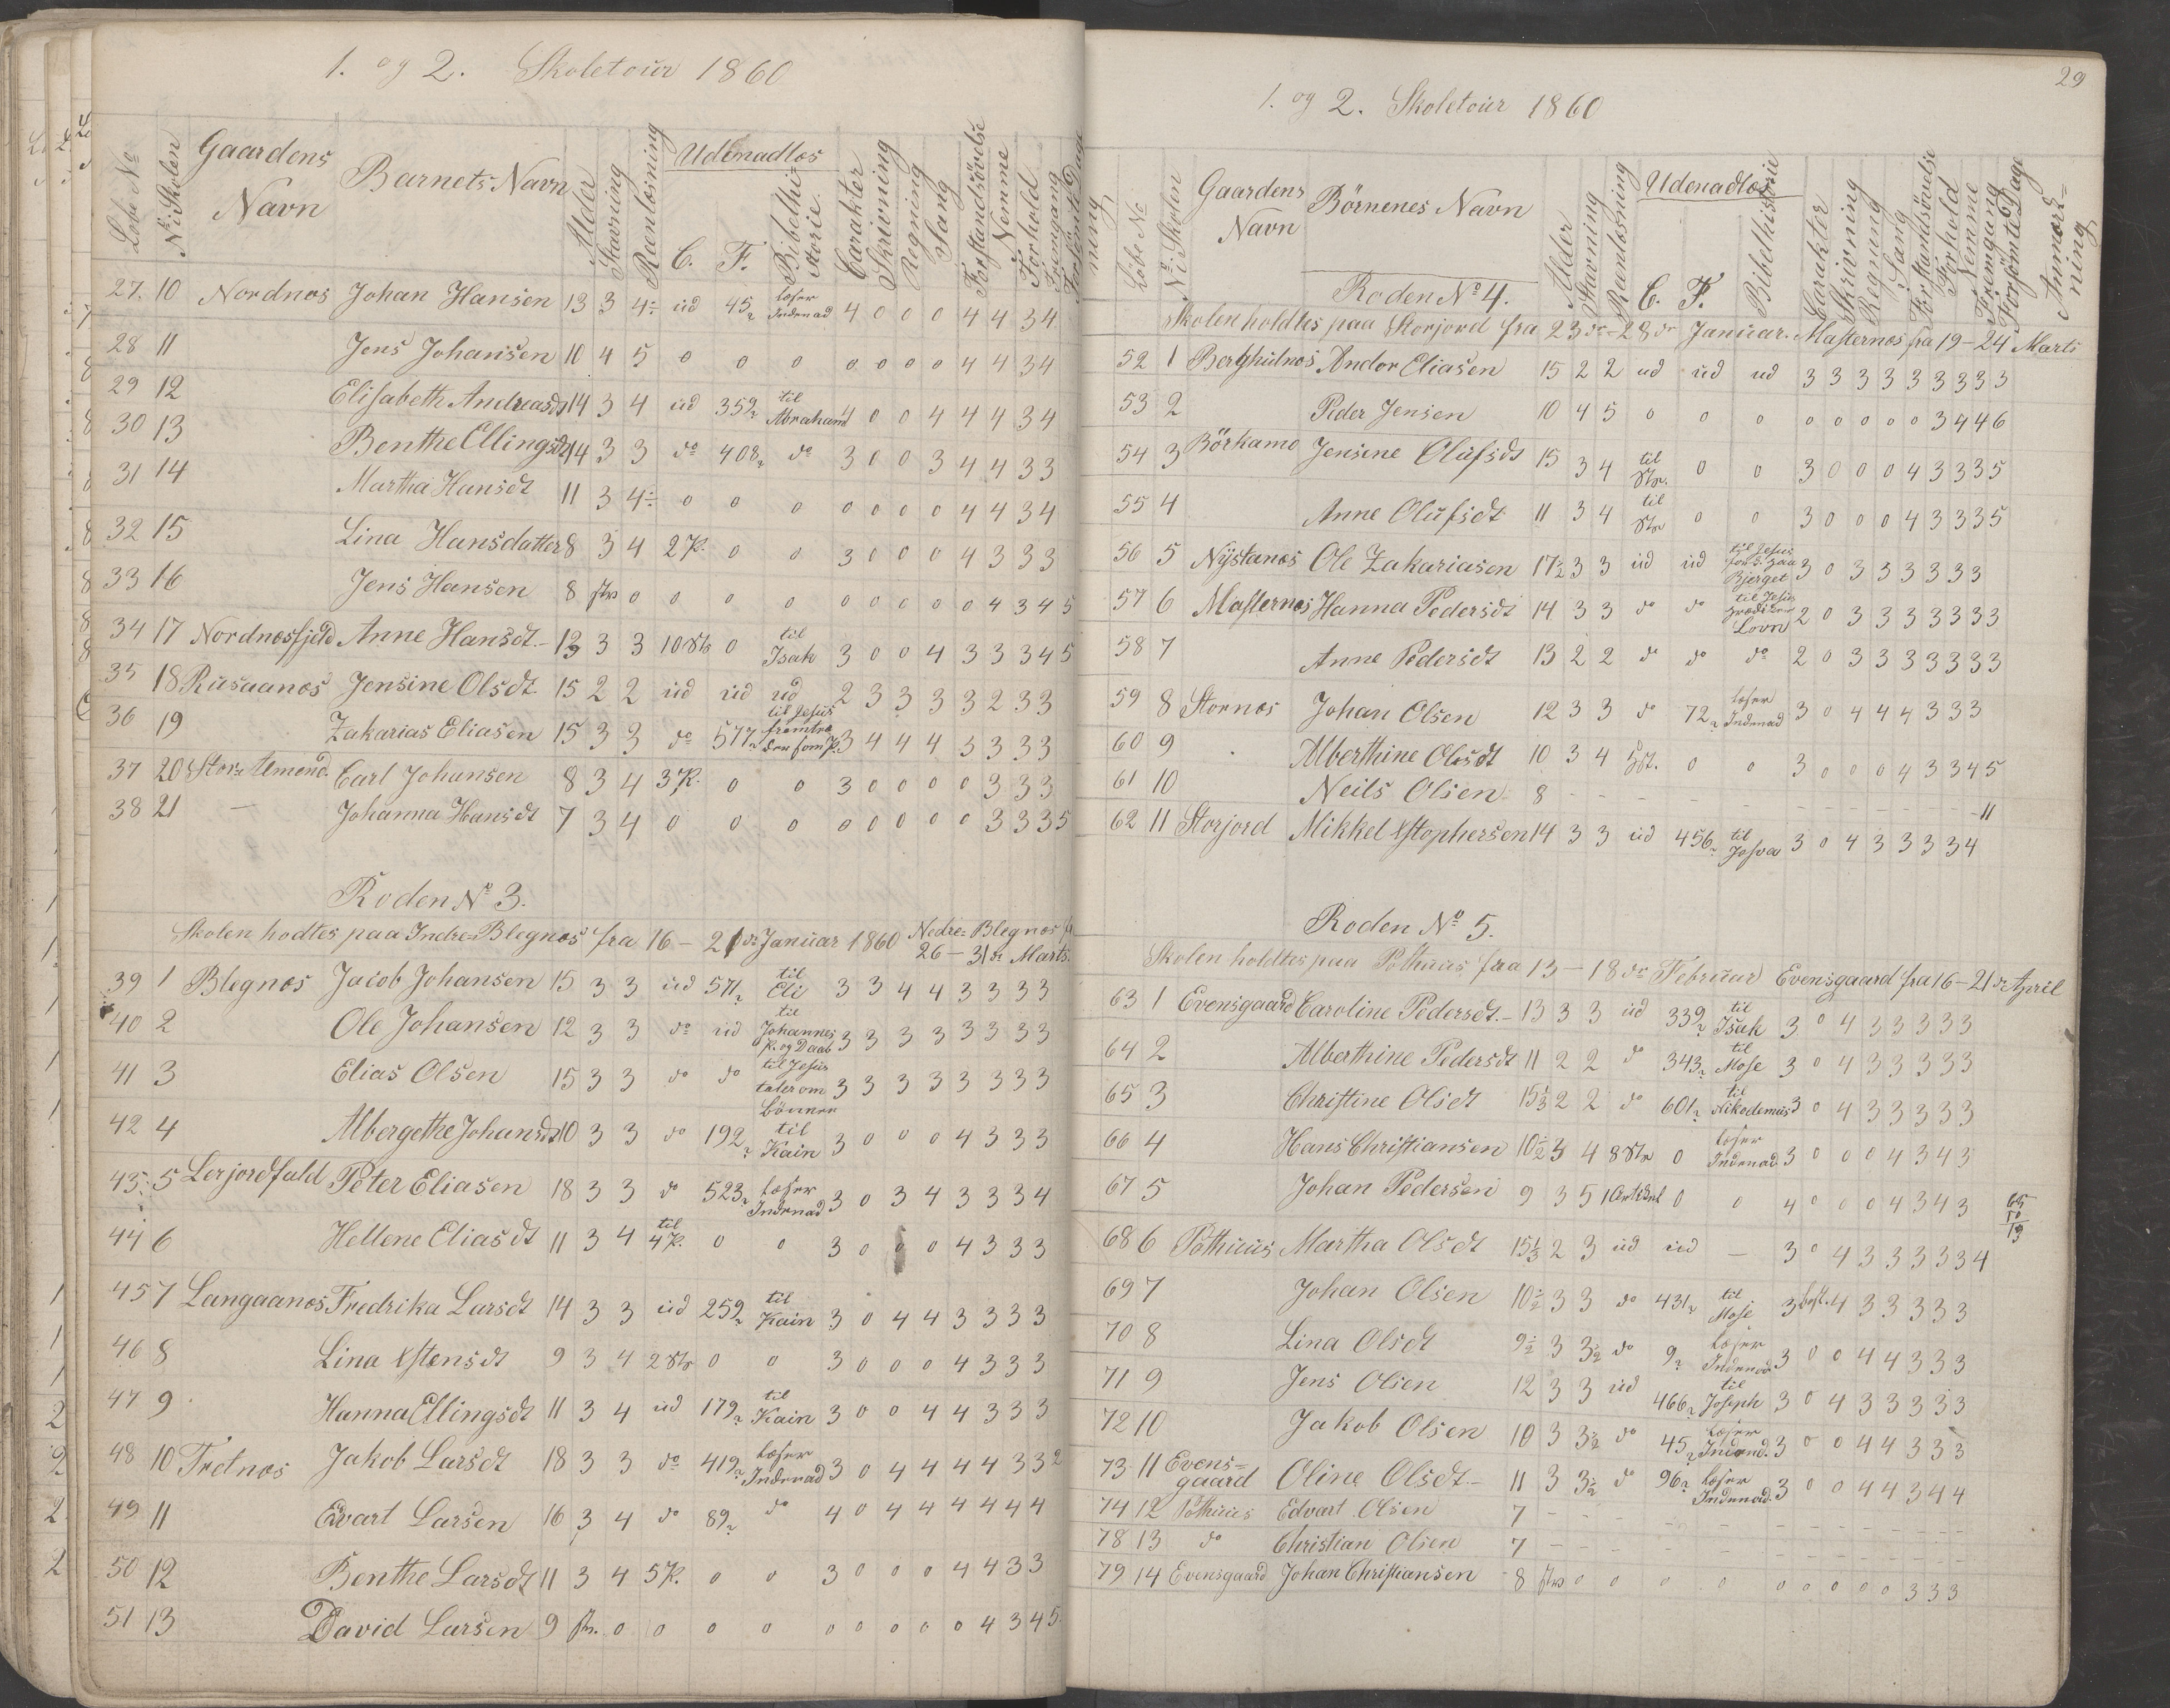 1. og 2. Skoletour 1860
Löbe No
No i Skolen
Gaardens Navn
Barnets Navn
Alder
Stavning
Reenlæsning
Udenadlæs
C.
F.
Bibelhistorie
Carakter
Skrivning
Regning
Sang
Forstandsövelse
Nemme
Forhold
Fremgang
Forsömte Dage
27. 10 Nordnæs Johan Hansen 13 3 4÷ ud 45 læser Indenad 4 0 0 0 4 4 3 4
28 11 Jens Johansen 10 4 5 0 0 0 0 0 0 0 4 4 3 4
29 12 Elisabeth Andreasdt 14 3 4 ud 359 til Abraham 4 0 0 4 4 4 3 4
30 13 Benthe Ellingsdt 14 3 3 do 408 do 3 0 0 3 4 4 3 3
31 14 Martha Hansdt 11 3 4÷ 0 0 0 0 0 0 0 4 4 3 4
32 15 Lina Hansdatter 8 3 4 2 P. 0 0 3 0 0 0 4 3 3 3
33 16 Jens Hansen 8 stv 0 0 0 0 0 0 0 0 0 4 3 4 5
34 17 Nordnæsfjeld Anne Hansdt 3 3 10 Str 0 til Isak 3 0 0 4 3 3 3 4 5
35 18 Rusaanæs Jensine Olsdt 15 2 2 ud ud ud 2 3 3 3 3 2 3 3
36 19 Zakarias Eliasen 15 3 3 do 577 til Jesus fremtræder som P. 3 4 4 4 3 3 3 3
37 20 Stor= Almend. Carl Johansen 8 3 4 3 P. 0 0 3 0 0 0 0 3 3 3
38 21 — Johanna Hansdt 7 3 4 0 0 0 0 0 0 0 0 3 3 3 5
Roden No 3.
Skolen hodtes paa Indre=Blegnæs fra 16 – 21 de Januar 1860 Nedre=Blegnæs
26 – 31 de Marts.
39 1 Blegnæs Jacob Johansen 15 3 3 ud 571 til Eli 3 3 4 4 3 3 3 3
40 2 Ole Johansen 12 3 3 do ud til Johannes P. og Daab 3 3 3 3 3 3 3 3
41 3 Elias Olsen 15 3 3 do do til Jesus taler om Bönnen 3 3 3 3 3 3 3 3
42 4 Albergethe Johansdt 10 3 3 do 192 til Kain 3 0 0 0 4 3 3 3
43 5 Lerjordfald Peter Eliasen 18 3 3 do 523 læser Indenad 3 0 3 4 3 3 3 4
44 6 Hellene Eliasdt 11 3 4 til 4 P. 0 0 3 0 0 0 4 3 3 3
45 7 Langaanæs Fredrika Larsdt 14 3 3 ud 259 til Kain 3 0 4 4 3 3 3 3
46 8 Lina Xstensdt 9 3 4 2 Str 0 0 3 0 0 0 4 3 3 3
47 9 Hanna Ellingsdt 11 3 4 ud 179 til Kain 3 0 0 4 4 3 3 3
48 10 Tretnæs Jakob Larsdt 18 3 3 do 419 læser Indenad 3 0 4 4 4 4 3 3 2
49 11 Evart Larsen 16 3 4 do 89 do 4 0 4 4 4 4 4 4
50 12 Benthe Larsdt 11 3 4 5 P. 0 0 3 0 0 0 4 4 3 3
51 13 David Larsen 9 stv. 0 0 0 0 0 0 0 0 0 4 3 4 5
29
1. og 2. Skoletour 1860
Löbe No
No i Skolen
Gaardens Navn
Börnenes Navn
Alder
Stavning
Reenlæsning
Udenadlæs
C.
F.
Bibelhistorie
Carakter
Skrivning
Regning
Sang
Forstandsövelse
Forhold
Nemme
Fremgang
Forsömte Dage
Anmærk=
ning
Roden No 4.
Skolen holdtes paa Storjord fra 23 de – 28 de Januar. Masternæs fra 19 – 24 Marts
52 1 Andor Eliasen 15 2 2 ud ud ud 3 3 3 3 3 3 3 3 3
53 2 Peder Jensen 10 4 5 0 0 0 0 0 0 0 0 3 4 4 6
54 3 Börkamo Jensine Olufsdt 15 3 4 til Str. 0 0 3 0 0 0 4 3 3 3 5
55 4 Anne Olufsdt 11 3 4 til Str 0 0 3 0 0 0 4 3 3 3 5
56 5 Nystanæs Ole Zakariasen 17½ 3 3 ud ud til Jesus paa Bjerget 3 0 3 3 3 3 3 3
57 6 Masternæs Hanna Pedersdt 14 3 3 do do til Jesus Loven 2 0 3 3 3 3 3 3 3
58 7 Anne Pedersdt 13 2 2 do do do 2 0 3 3 3 3 3 3 3
59 8 Stornæs Johan Olsen 12 3 3 do 72 læser Indenad 3 0 4 4 4 3 3 3
60 9 Alberthine Olsdt 10 3 4 0 0 3 0 0 0 4 3 3 4 5
61 10 Neils Olsen 8 - - - - - - - - - - - - - 11
62 11 Storjord Mikkel Xstophersen 14 3 3 ud 456 til Josva 3 0 4 3 3 3 3 3 4
Roden No 5.
Skolen holdtes paa Pothuus fra 13 – 18 de Februar Evensgaard fra 16 – 21 de April
63 1 Evensgaard Caroline Pedersdt. 13 3 3 ud 339 til Isak 3 0 4 3 3 3 3 3
64 2 Alberthine Pedersdt 11 2 2 do 343 til Mose 3 0 4 3 3 3 3 3
65 3 Christine Olsdt 15⅓ 2 2 do 601 til Nikodemus 3 0 4 3 3 3 3 3
66 4 Hans Christiansen 10½ 3 4 8 Str 0 læser Indenad 3 0 0 0 4 3 4 3
67 5 Johan Pedersen 9 3 5 1 Artikel 0 0 4 0 0 0 4 3 4 3
65
68 6 Pothuus Martha Olsdt 15⅓ 2 3 ud ud — 3 0 4 3 3 3 3 3 4
69 7 Johan Olsen 10½ 3 3 do 431 til Mose 3 4 3 3 3 3 3
70 8 Lina Olsdt 9½ 3 3½ do 9 læser Indenad 3 0 0 4 4 3 3 3
71 9 Jens Olsen 12 3 3 ud 466 til Joseph 3 0 4 3 3 3 3 3
72 10 Jakob Olsen 10 3 3½ do 45 læser Indend. 3 0 0 4 4 3 3 3
73 11 Evens=gaard Oline Olsdt 11 3 3½ do 96 læser Indenad. 3 0 0 4 4 3 4 4
74 12 Pothuus Edvart Olsen 7 - - - - - - - - - - - -
78 13 do Christian Olsen 7 - - - - - - - - - - - -
79 14 Evensgaard Johan Christiansen 8 stv 0 0 0 0 0 0 0 0 0 3 3 3